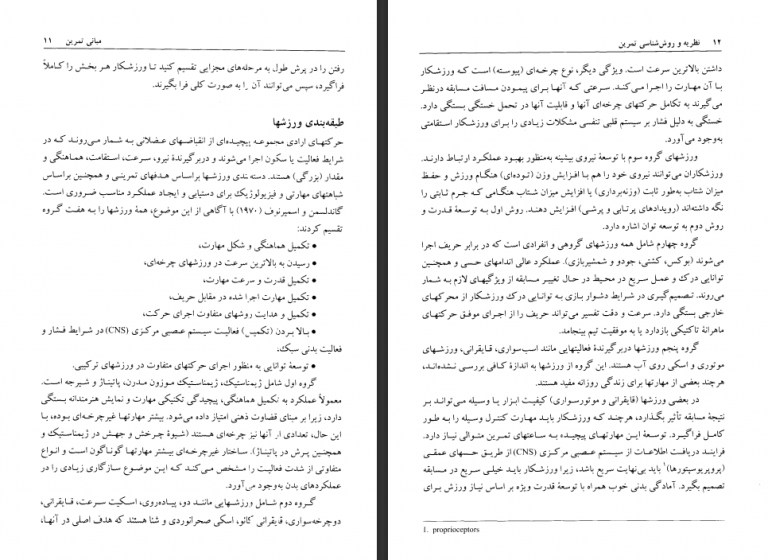 مبانی تمرین ۱۱
رفتن را در پرش طول به مرحله‌های مجزایی تقسیم کنید تا ورزشکار هر بخش را کاملاً
فراگیرد، سپس می‌توانند آن را به صورت کلی فرا بگیرند.
طبقه‌بندی ورزشها
حرکتهای ارادی مجموعه پیچیده‌ای از انقباضهای عضلانی به شمار می‌روند که در
شرایط فعالیت یا سکون اجرا می‌شوند و دربرگیرندهٔ نیرو، سرعت، استقامت، هماهنگی و
مقدار (بزرگی) هستند. دسته‌بندی ورزشها براساس هدفهای تمرینی و همچنین براساس
شباهتهای مهارتی و فیزیولوژیک برای دستیابی و ایجاد عملکرد مناسب ضروری است.
گاندلسمن و اسمیرنوف (۱۹۷۰) با آگاهی از این موضوع، همهٔ ورزشها را به هفت گروه
تقسیم کردند:
• تکمیل هماهنگی و شکل مهارت،
• رسیدن به بالاترین سرعت در ورزشهای چرخه‌ای،
• تکمیل قدرت و سرعت مهارت،
• تکمیل مهارت اجرا شده در مقابل حریف،
• تکمیل و هدایت روشهای متفاوت اجرای حرکت،
• بالا بردن (تکمیل) فعالیت سیستم عصبی مرکزی (CNS) در شرایط فشار و
فعالیت بدنی سبک،
• توسعهٔ توانایی به منظور اجرای حرکتهای متفاوت در ورزشهای ترکیبی.
گروه اول شامل ژیمناستیک، ژیمناستیک موزون مدرن، پاتیناژ و شیرجه است.
معمولاً عملکرد به تکمیل هماهنگی، پیچیدگی تکنیکی مهارت و نمایش هنرمندانه بستگی
دارد، زیرا بر مبنای قضاوت ذهنی امتیاز داده می‌شود. بیشتر مهارتها غیرچرخه‌ای بوده، با
این حال، تعدادی از آنها نیز چرخه‌ای هستند (شیوهٔ چرخش و جهش در ژیمناستیک و
همچنین پرش در پاتیناژ). ساختار غیرچرخه‌ای بیشتر مهارتها گوناگون است و انواع
متفاوتی از شدت فعالیت را مشخص می‌کند که این موضوع سازگاری زیادی را در
عملکردهای بدن به‌وجود می‌آورد.
گروه دوم شامل ورزشهایی مانند دو، پیاده‌روی، اسکیت سرعت، قایقرانی،
دوچرخه‌سواری، قایقرانی کانو، اسکی صحرانوردی و شنا هستند که هدف اصلی در آنها،
۱۲ نظریه و روش‌شناسی تمرین
داشتن بالاترین سرعت است. ویژگی دیگر، نوع چرخه‌ای (پیوسته) است که ورزشکار
با آن مهارت را اجرا می‌کند. سرعتی که آنها برای پیمودن مسافت مسابقه درنظر
می‌گیرند به تکامل حرکتهای چرخه‌ای آنها و قابلیت آنها در تحمل خستگی بستگی دارد.
خستگی به دلیل فشار بر سیستم قلبی تنفسی مشکلات زیادی را برای ورزشکار استقامتی
به‌وجود می‌آورد.
ورزشهای گروه سوم با توسعهٔ نیروی بیشینه به‌منظور بهبود عملکرد ارتباط دارند.
ورزشکاران می‌توانند نیروی خود را هم با افزایش وزن (توده‌ای) هنگام ورزش و حفظ
میزان شتاب به‌طور ثابت (وزنه‌برداری) یا افزایش میزان شتاب هنگامی که جرم ثابتی را
نگه داشته‌اند (رویدادهای پرتابی و پرشی) افزایش دهند. روش اول به توسعهٔ قدرت و
روش دوم به توسعه توان اشاره دارد.
گروه چهارم شامل همه ورزشهای گروهی و انفرادی است که در برابر حریف اجرا
می‌شوند (بوکس، کشتی، جودو و شمشیربازی). عملکرد عالی اندامهای حسی و همچنین
توانایی درک و عمل سریع در محیط در حال تغییر مسابقه از ویژگیهای لازم به شمار
می‌روند. تصمیم‌گیری در شرایط دشوار بازی به توانایی درک ورزشکار از محرکهای
خارجی بستگی دارد. سرعت و دقت تفسیر می‌تواند حریف را از اجرای موفق حرکتهای
ماهرانهٔ تاکتیکی بازدارد یا به موفقیت تیم بینجامد.
گروه پنجم ورزشها دربرگیرندهٔ فعالیتهایی مانند اسب‌سواری، قایقرانی، ورزشهای
موتوری و اسکی روی آب هستند. این گروه از ورزشها به اندازهٔ کافی بررسی نشده‌اند،
هرچند بعضی از مهارتها برای زندگی روزانه مفید هستند.
در بعضی ورزشها (قایقرانی و موتورسواری) کیفیت ابزار یا وسیله می‌تواند بر
نتیجهٔ مسابقه تأثیر بگذارد، هرچند که ورزشکار باید مهارت کنترل وسیله را به طور
کامل فراگیرد. توسعهٔ این مهارتهای پیچیده به ساعتهای تمرین متوالی نیاز دارد.
فرایند دریافت اطلاعات از سیستم عصبی مرکزی (CNS) از طریق حسهای عمقی
(پروپریوسپتورها)۱ باید بی‌نهایت سریع باشد، زیرا ورزشکار باید خیلی سریع در مسابقه
تصمیم بگیرد. آمادگی بدنی خوب همراه با توسعهٔ قدرت ویژه بر اساس نیاز ورزش برای
1. proprioceptors